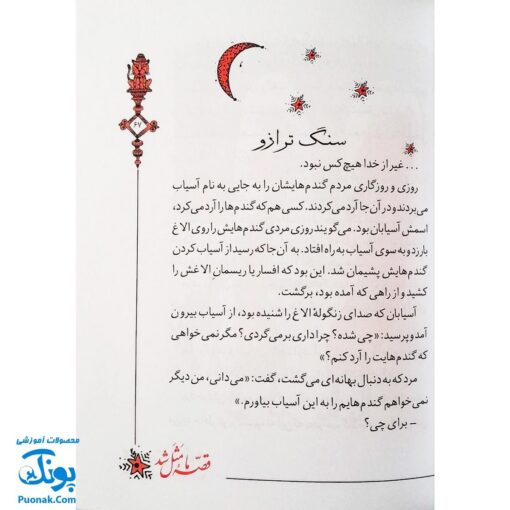 ۶۷
سنگ ترازو
... غیر از خدا هیچ کس نبود.
روزی و روزگاری مردم گندم‌هایشان را به جایی به نام آسیاب
می‌بردند و در آن جا آرد می‌کردند. کسی هم که گندم‌ها را آرد می‌کرد،
اسمش آسیابان بود. می‌گویند روزی مردی گندم‌هایش را روی الاغ
بار زد و به سوی آسیاب به راه افتاد. به آن جا که رسید از آسیاب کردن
گندم‌هایش پشیمان شد. این بود که افسار یا ریسمانِ الاغش را
کشید و از راهی که آمده بود، برگشت.
آسیابان که صدای زنگولهٔ الاغ را شنیده بود، از آسیاب بیرون
آمد و پرسید: «چی شده؟ چرا داری برمی‌گردی؟ مگر نمی‌خواهی
که گندم‌هایت را آرد کنم؟»
مرد که به دنبال بهانه‌ای می‌گشت، گفت: «می‌دانی، من دیگر
نمی‌خواهم گندم‌هایم را به این آسیاب بیاورم.»
- برای چی؟
قصه ما مَثَل شد
محصولات آموزشی
پونک
Puonak.Com